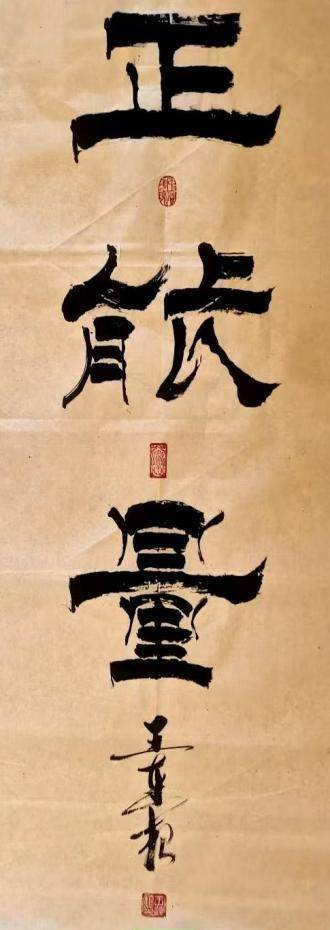 正能量